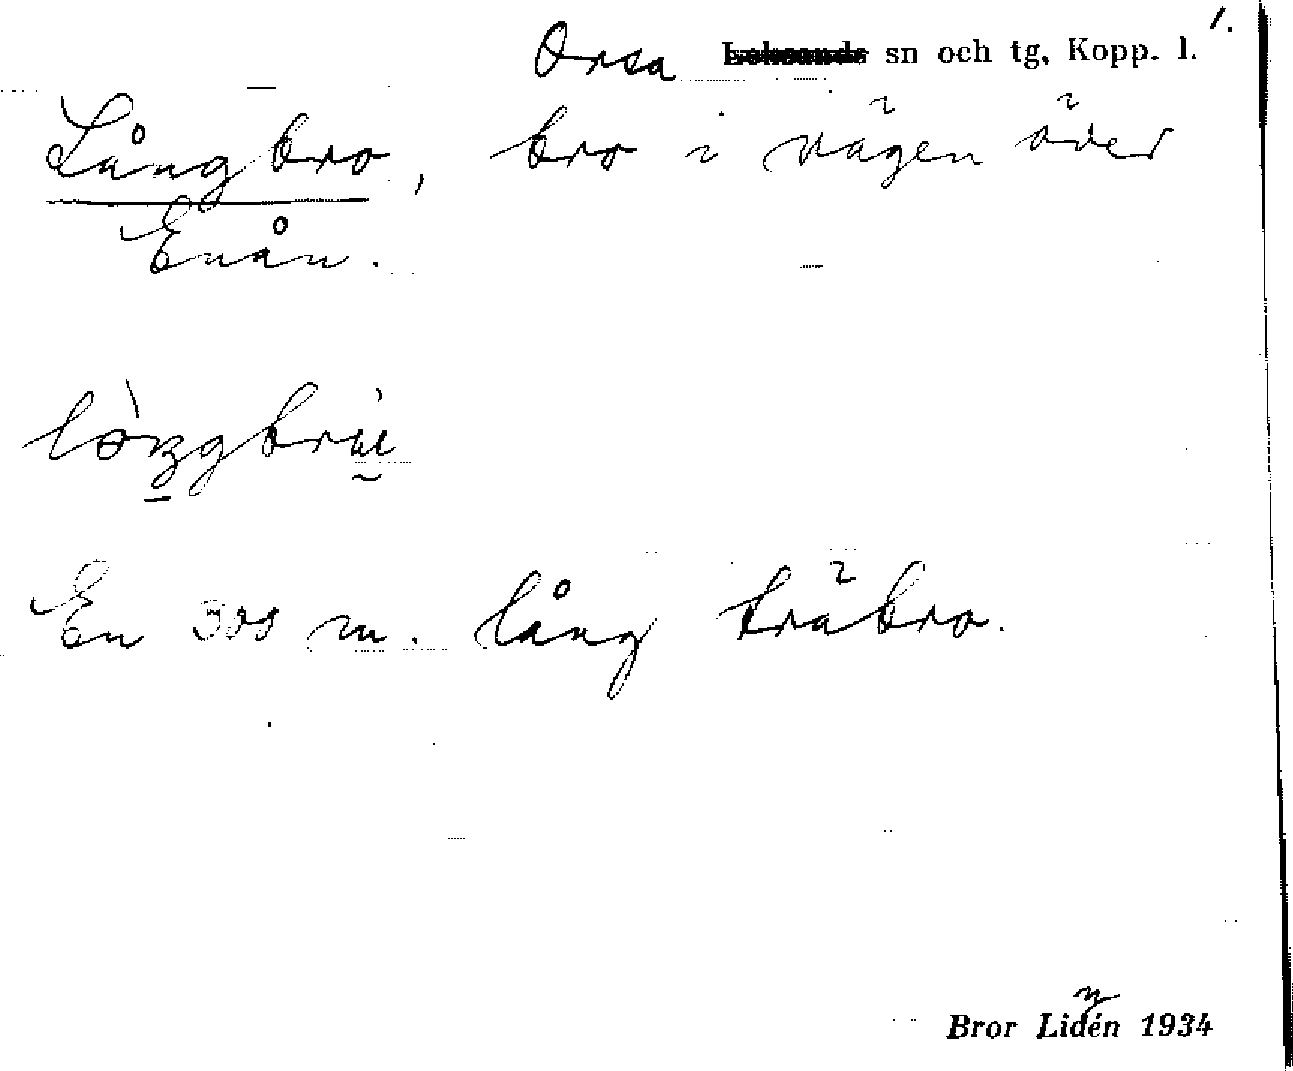 1.
Orsa sn och tg, Kopp. l.
Långbro, bro i vägen över
Enån.
En 300 m. lång träbro.
Bror Lidén 1934